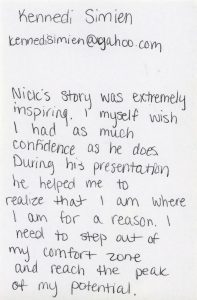 Kennedi Simien
kennedisimien@yahoo.com
Nick's story was extremely
inspiring. I myself wish
I had as much
confidence as he does.
During his presentation
he helped me to
realize that I am where
I am for a reason. I
need to step out of
my comfort zone
and reach the peak
of my potential.